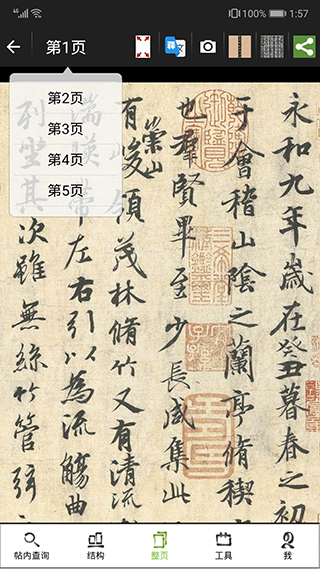 4G 85% 1:57
第1页
第2页
第3页
第4页
第5页
永和九年歲在癸丑暮春之初
于會稽山陰之蘭亭脩稧
也羣賢畢至少長咸集此
有崇山峻領茂林脩竹又有清流
湍暎帶左右引以為流觴曲
列坐其次雖無絲竹管弦
帖内查询
结构
整页
工具
我